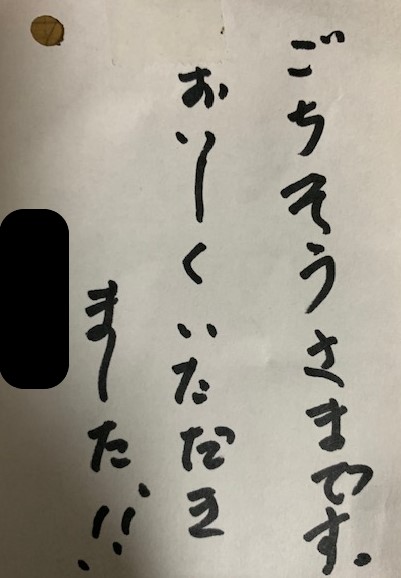 ごちそうさまです。
おいしくいただき
ました!!